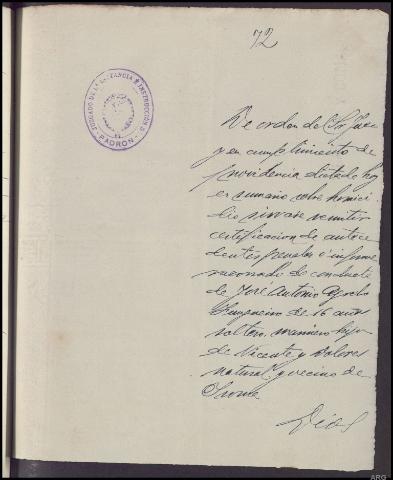 72
JUZGADO DE 1ª INSTANCIA É INSTRUCCIÓN
PADRÓN
De orden del Sr Juez
y en cumplimiento de
providencia dictada hoy
en sumario sobre homici
dio sirvase remitir
certificacion de antece
dentes penales é informe
razonado de conducta
de José Antonio
de 16 años
soltero, marinero hijo
de Vicente y Dolores
natural y vecino de
Dios
ARG